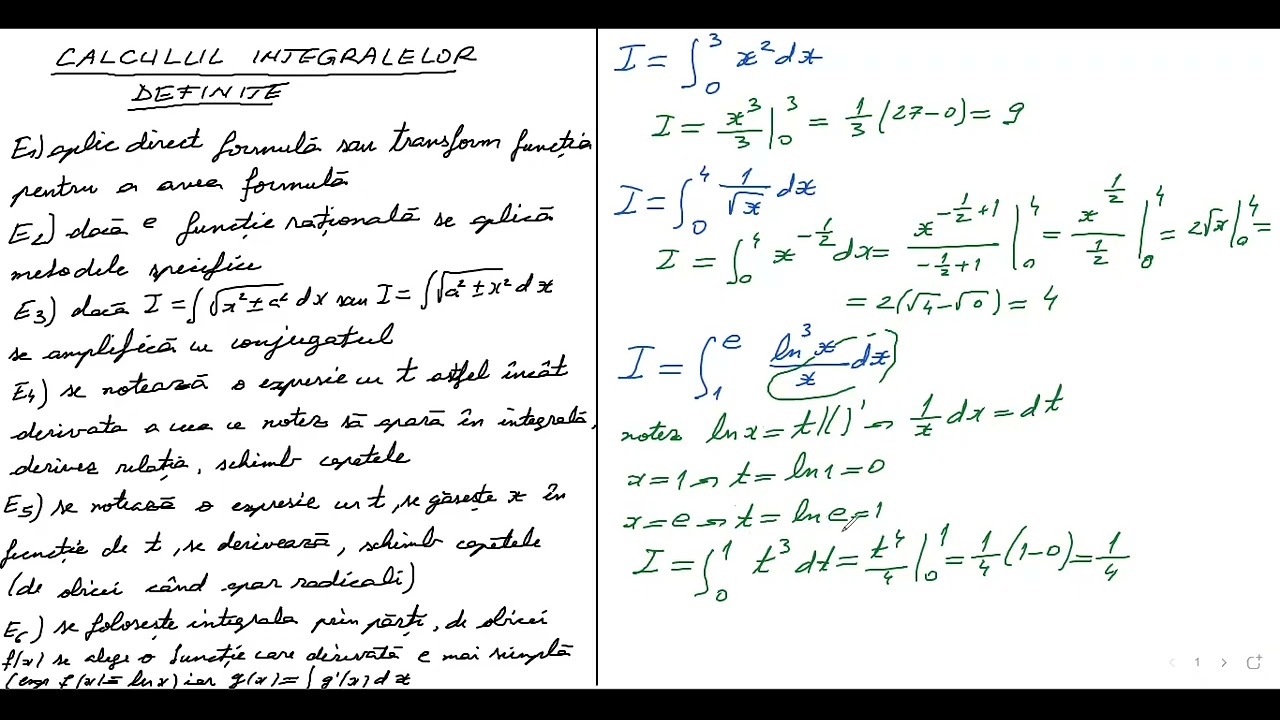 CALCULUL INTEGRALELOR
DEFINITE
E1) aplic direct formulă sau transform funcția
pentru a avea formulă
E2) dacă e funcție rațională se aplică
metodele specifice
E3) dacă I = ∫√(x² ± a²) dx sau I = ∫√(a² ± x²) dx
se amplifică cu conjugatul
E4) se notează o expresie cu t astfel încât
derivata a ceea ce notez să apară în integrală,
derivez relația, schimb capetele
E5) se notează o expresie cu t, se găsește x în
funcție de t, se derivează, schimb capetele
(de obicei când apar radicali)
E6) se folosește integrala prin părți, de obicei
f(x) se alege o funcție care derivată e mai simplă
(exp f(x) = ln x) iar g(x) = ∫ g'(x) dx
I = ∫₀³ x² dx
I = x³/3 |₀³ = 1/3 (27 - 0) = 9
I = ∫₀⁴ 1/√x dx
I = ∫₀⁴ x^(-1/2) dx = x^(-1/2+1)/(-1/2+1) |₀⁴ = x^(1/2)/(1/2) |₀⁴ = 2√x |₀⁴ =
= 2(√4 - √0) = 4
I = ∫₁ᵉ ln³x/x dx
notez ln x = t |( )' → 1/x dx = dt
x = 1 → t = ln 1 = 0
x = e → t = ln e = 1
I = ∫₀¹ t³ dt = t⁴/4 |₀¹ = 1/4 (1 - 0) = 1/4
1